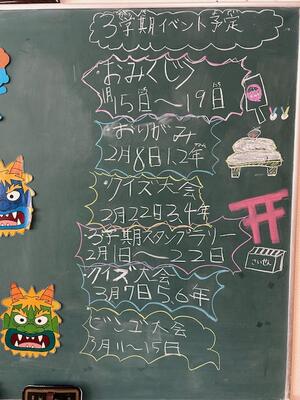 3学期イベント予定
おみくじ
1月15日～19日
おりがみ
2月8日1.2年
クイズ大会
2月22日3.4年
3学期スタンプラリー
2月1日～22日
クイズ大会
3月7日5.6年
ビンゴ大会
3月11～15日
さいせん